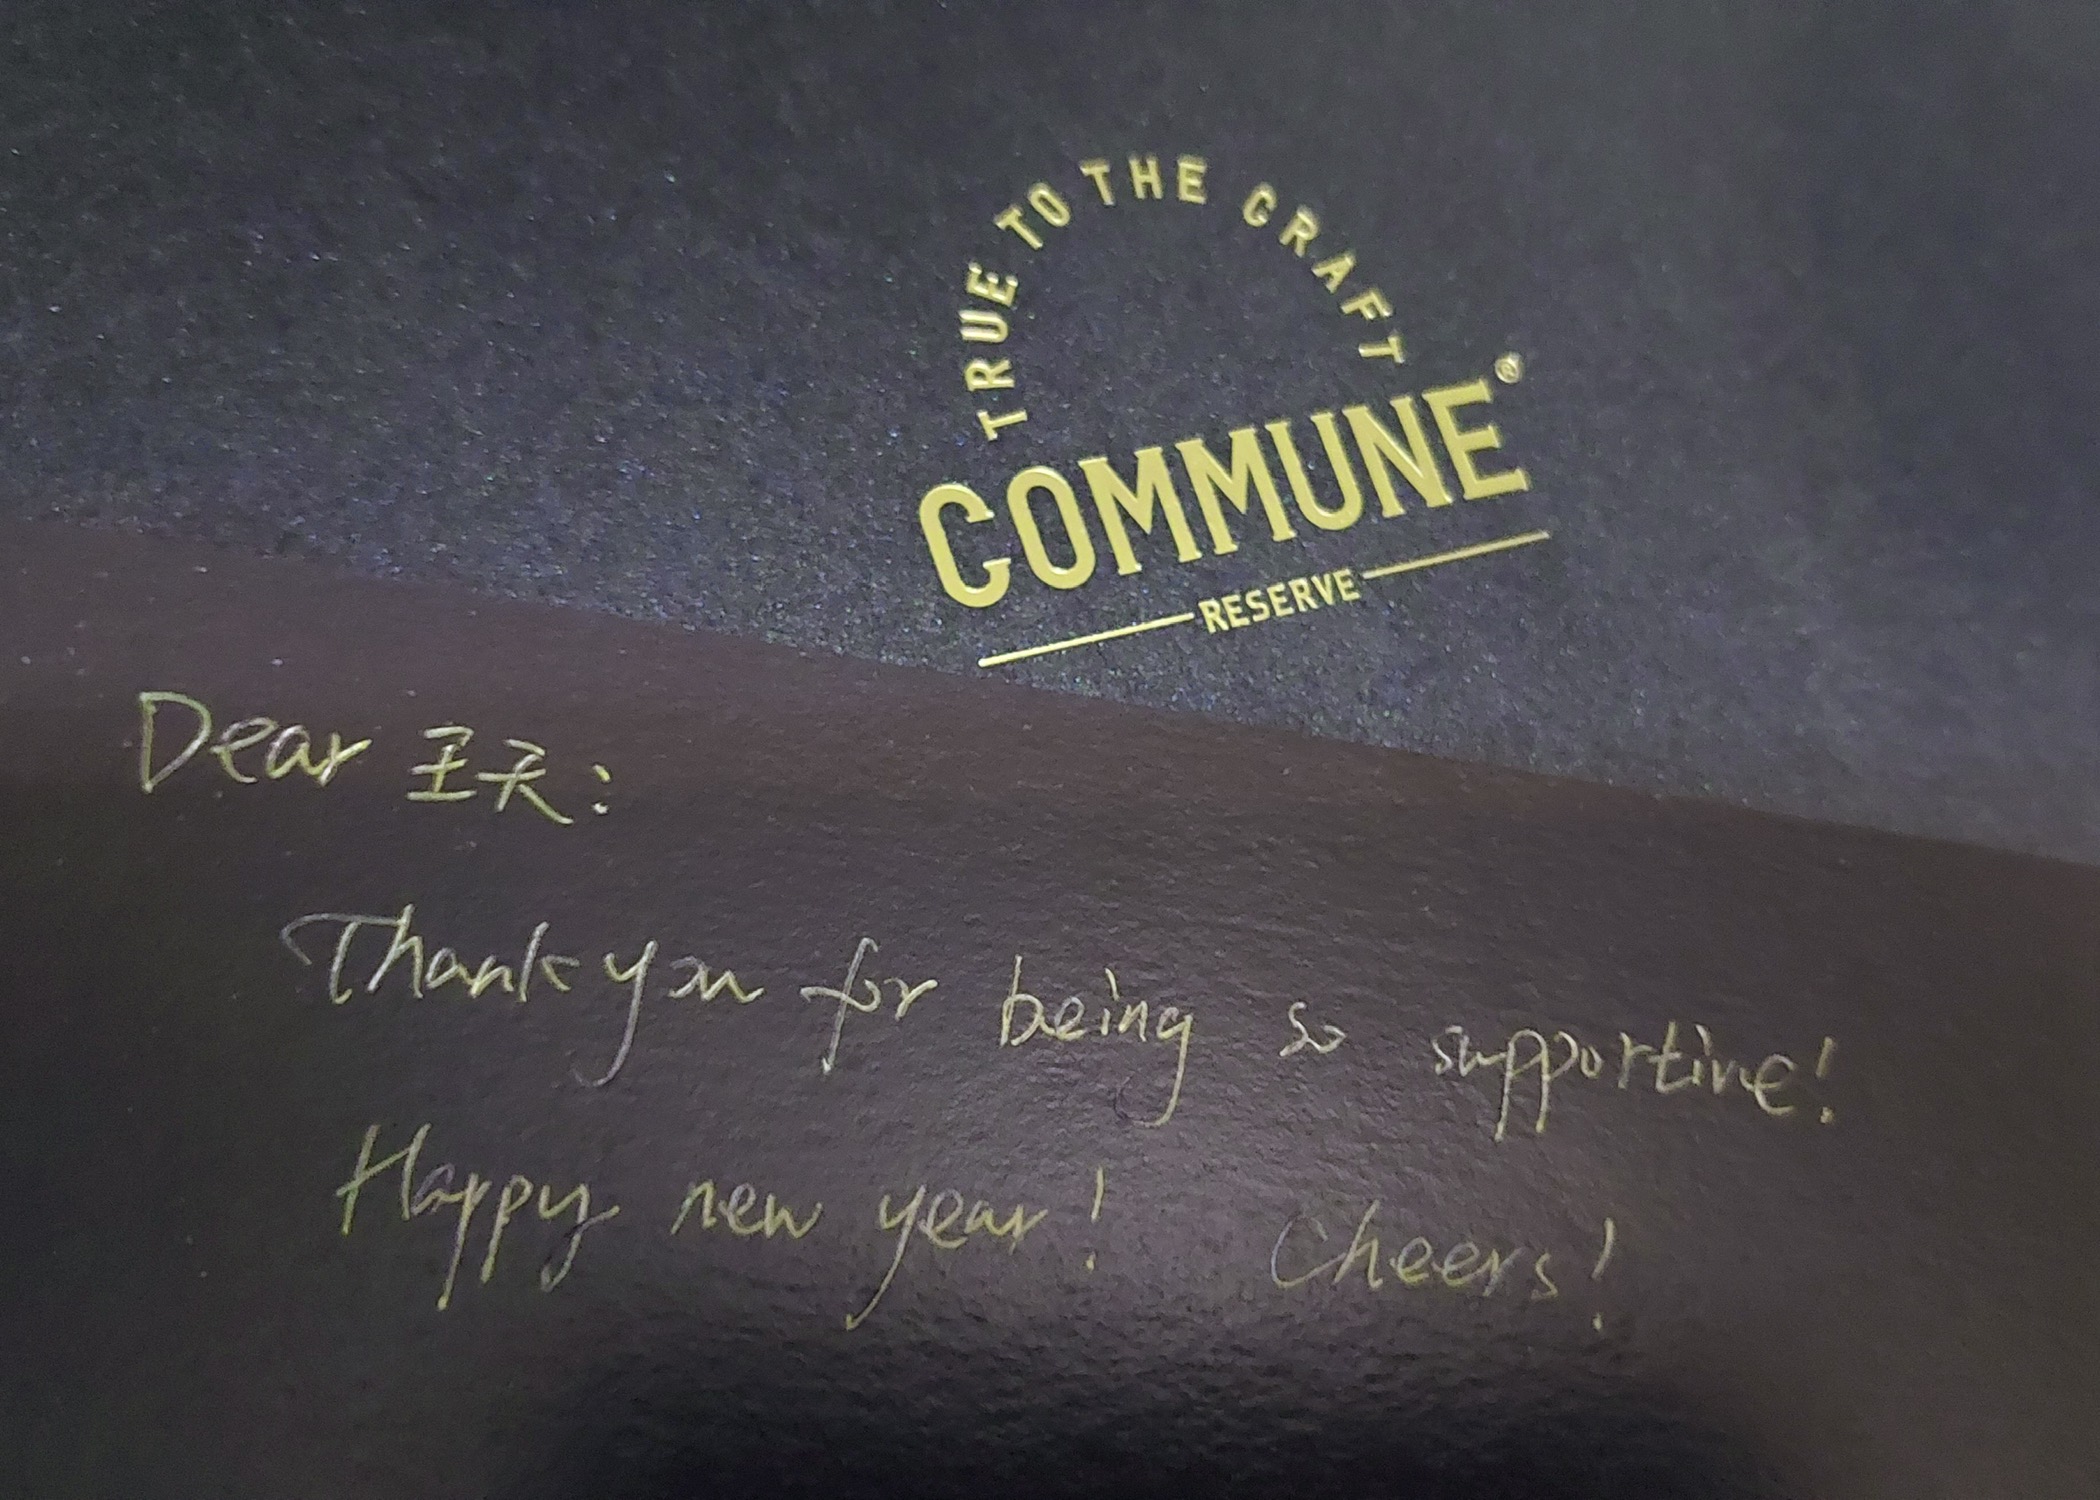 TRUE TO THE CRAFT
COMMUNE®
RESERVE
Dear 王天:
Thank you for being so supportive!
Happy new year! Cheers!